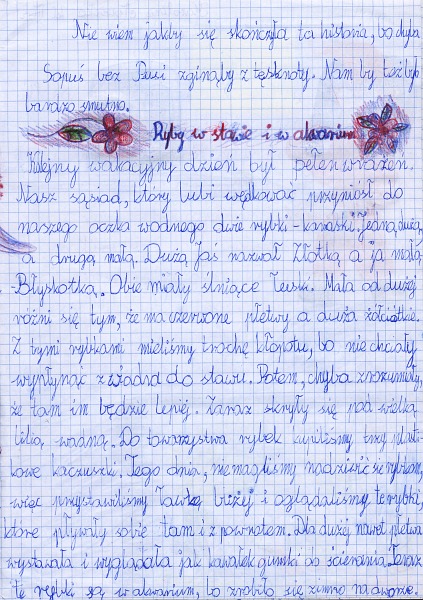 Nie wiem jakby się skończyła ta historia, bo chyba
Sapuś bez Pusi zginąłby z tęsknoty. Nam by też było
bardzo smutno.
Ryby w stawie i w akwarium
Kolejny wakacyjny dzień był pełen wrażeń.
Nasz sąsiad, który lubi wędkować przyniósł do
naszego oczka wodnego dwie rybki - karaski. Jedną dużą,
a drugą małą. Dużą Jaś nazwał Złotką a ja małą
-Błyskotką. Obie miały lśniące łuski. Mała od dużej
różni się tym, że ma czerwone płetwy a duża żółciutkie.
Z tymi rybkami mieliśmy trochę kłopotu, bo nie chciały
wypłynąć z wiadra do stawu. Potem, chyba zrozumiały,
że tam im będzie lepiej. Zaraz skryły się pod wielką
lilią wodną. Do towarzystwa rybek kupiliśmy trzy plasti-
kowe kaczuszki. Tego dnia, nie mogliśmy nadziwić się rybkom,
więc przystawiliśmy ławkę bliżej i oglądaliśmy te rybki,
które pływały sobie tam i z powrotem. Dla dużej nawet płetwa
wystawała i wyglądała jak kawałek gumki do ścierania. Teraz
te rybki są w akwarium, bo zrobiło się zimno na dworze.